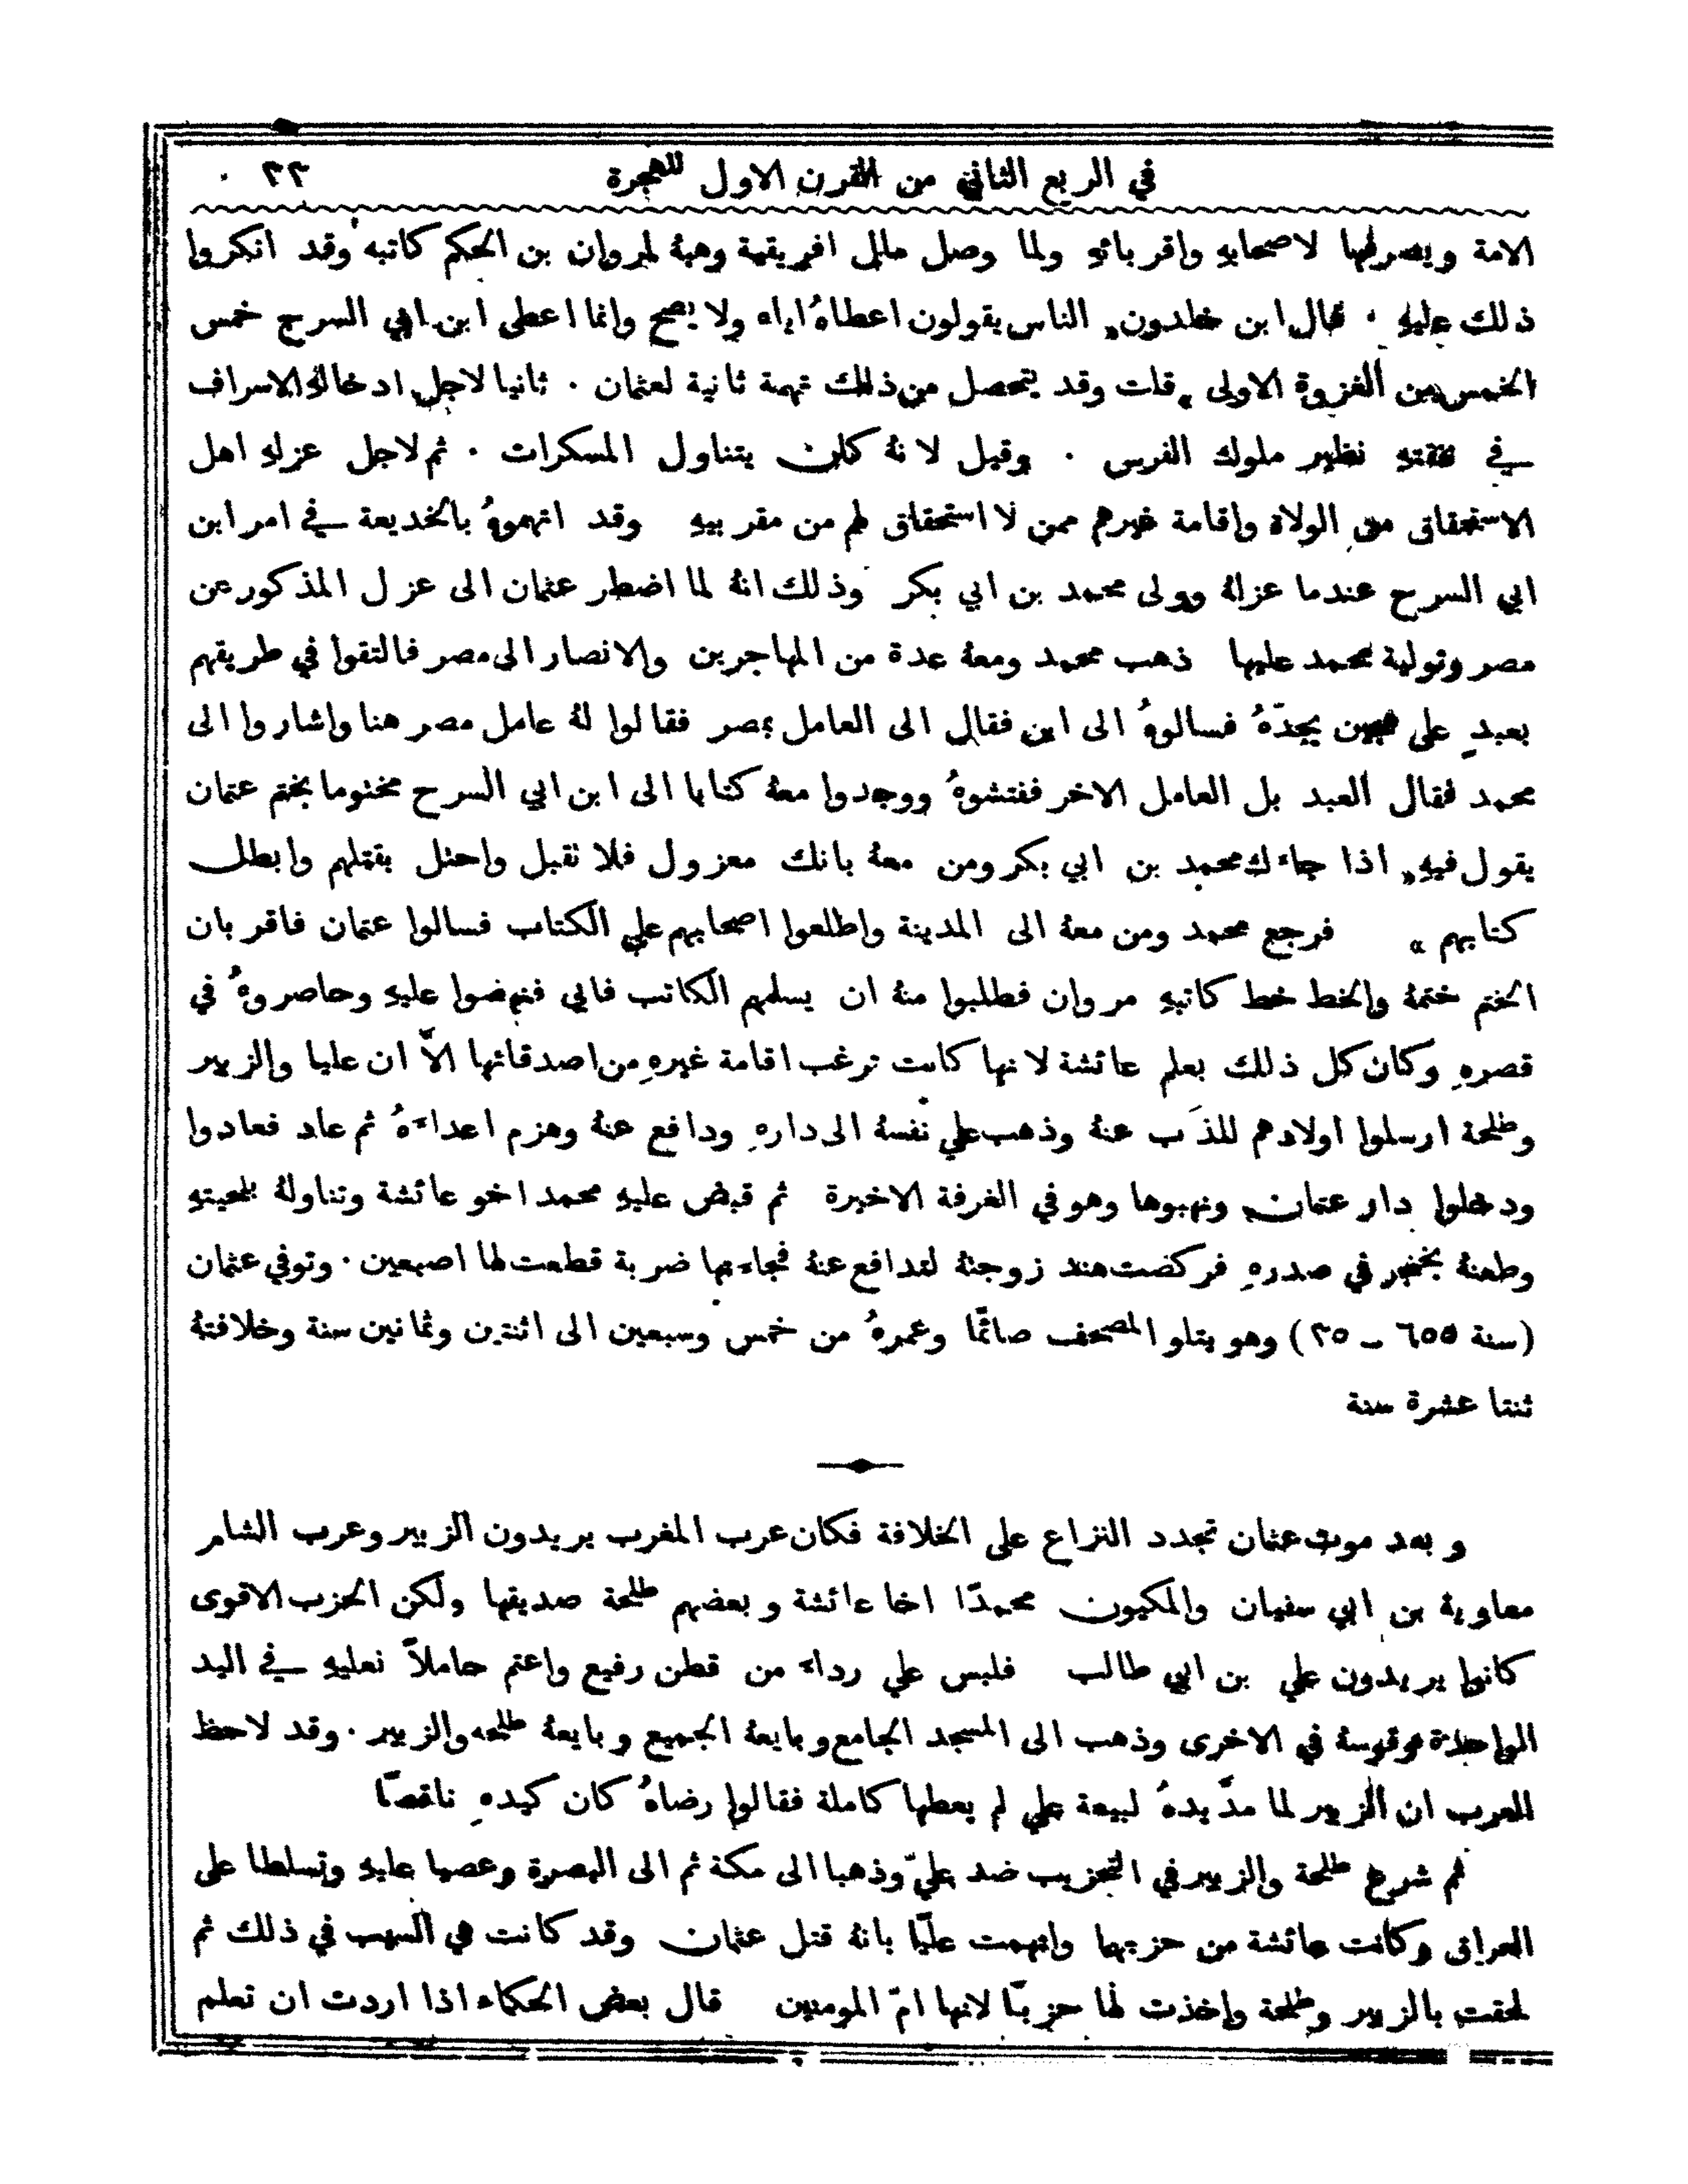 في الربع الثاني من القرن الاول للهجرة ٣٣
الامة ويصرفها لاصحابهِ واقربائهِ ولما وصل مال افريقية وهبهُ لمروان بن الحكم كاتبه وقد انكروا
ذلك عليهِ ٠ قال ابن خلدون „ الناس يقولون اعطاهُ اياه ولا يصح وانما اعطى ابن ابي السرح خمس
الخمس من الغزوة الاولى „ قلت وقد يتحصل من ذلك تهمة ثانية لعثمان ٠ ثانيا لاجل ادخالهِ الاسراف
في نفقتهِ نظير ملوك الفرس ٠ وقيل لانهُ كان يتناول المسكرات ٠ ثم لاجل عزلهِ اهل
الاستحقاق من الولاة واقامة غيرهم ممن لا استحقاق لهم من مقربيهِ وقد اتهموهُ بالخديعة في امر ابن
ابي السرح عندما عزلهُ وولى محمد بن ابي بكر وذلك انهُ لما اضطر عثمان الى عزل المذكور عن
مصر وتولية محمد عليها ذهب محمد ومعهُ عدة من المهاجرين والانصار الى مصر فالتقوا في طريقهم
بعبدٍ على هجين يجدّهُ فسالوهُ الى اين فقال الى العامل بمصر فقالوا لهُ عامل مصر هنا واشاروا الى
محمد فقال العبد بل العامل الاخر ففتشوهُ ووجدوا معهُ كتابا الى ابن ابي السرح مختوما بختم عثمان
يقول فيهِ „ اذا جاءك محمد بن ابي بكر ومن معهُ بانك معزول فلا تقبل واحتل بقتلهم وابطل
كتابهم „ فرجع محمد ومن معهُ الى المدينة واطلعوا اصحابهم علي الكتاب فسالوا عثمان فاقر بان
الختم ختمهُ والخط خط كاتبهِ مروان فطلبوا منهُ ان يسلمهم الكاتب فابى فنهضوا عليهِ وحاصروهُ في
قصرهِ وكان كل ذلك بعلم عائشة لانها كانت ترغب اقامة غيرهِ من اصدقائها الاّ ان عليا والزبير
وطلحة ارسلوا اولادهم للذَب عنهُ وذهب علي نفسهُ الى دارهِ ودافع عنهُ وهزم اعداءهُ ثم عاد فعادوا
ودخلوا دار عثمان ونهبوها وهو في الغرفة الاخيرة ثم قبض عليهِ محمد اخو عائشة وتناولهُ بلحيتهِ
وطعنهُ بخنجر في صدرهِ فركضت هند زوجتهُ لتدافع عنهُ فجاءتها ضربة قطعت لها اصبعين ٠ وتوفي عثمان
(سنة ٦٥٥ ـ ٣٥) وهو يتلو المصحف صائمًا وعمرهُ من خمس وسبعين الى اثنتين وثمانين سنة وخلافتهُ
ثنتا عشرة سنة
وبعد موت عثمان تجدد النزاع على الخلافة فكان عرب المغرب يريدون الزبير وعرب الشام
معاوية بن ابي سفيان والمكيون محمدًا اخا عائشة وبعضهم طلحة صديقها ولكن الحزب الاقوى
كانوا يريدون علي بن ابي طالب فلبس علي رداء من قطن رفيع واعتم حاملاً نعليهِ في اليد
الواحدة وقوسهُ في الاخرى وذهب الى المسجد الجامع وبايعهُ الجميع وبايعهُ طلحه والزبير ٠ وقد لاحظ
العرب ان الزبير لما مدّ يدهُ لبيعة علي لم يعطها كاملة فقالوا رضاهُ كان كيدهِ ناقصًا
ثم شرع طلحة والزبير في التحزيب ضد عليّ وذهبا الى مكة ثم الى البصرة وعصيا عليهِ وتسلطا على
العراق وكانت عائشة من حزبهما واتهمت عليًّا بانهُ قتل عثمان وقد كانت هي السبب في ذلك ثم
لحقت بالزبير وطلحة واخذت لها حزبًا لانها امّ المومنين قال بعض الحكماء اذا اردت ان تعلم